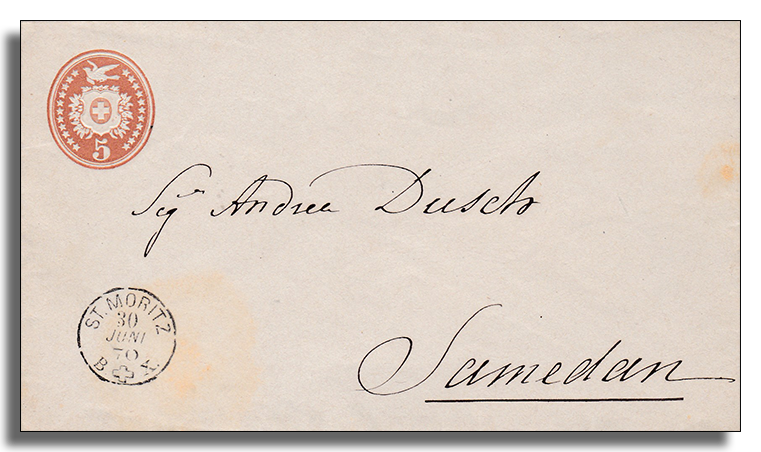 5
Sig.r Andrea Dusch
ST. MORITZ
30
JUNI
70
B X
Samedan